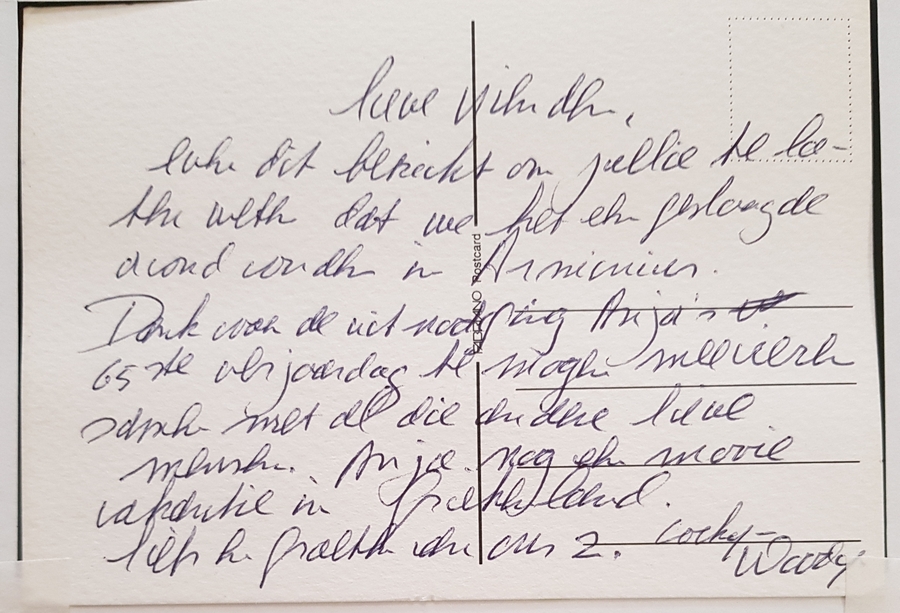 lieve vrienden,
even dit bericht om jullie te la-
ten weten dat we het een geslaagde
avond vonden in Arminius.
Dank voor de uitnodiging Anja's
65ste verjaardag te mogen meevieren
samen met al die andere lieve
mensen. Anja nog een mooie
vakantie in Griekenland.
liefs en groeten van ons 2. Cocky-
Woody
Postcard